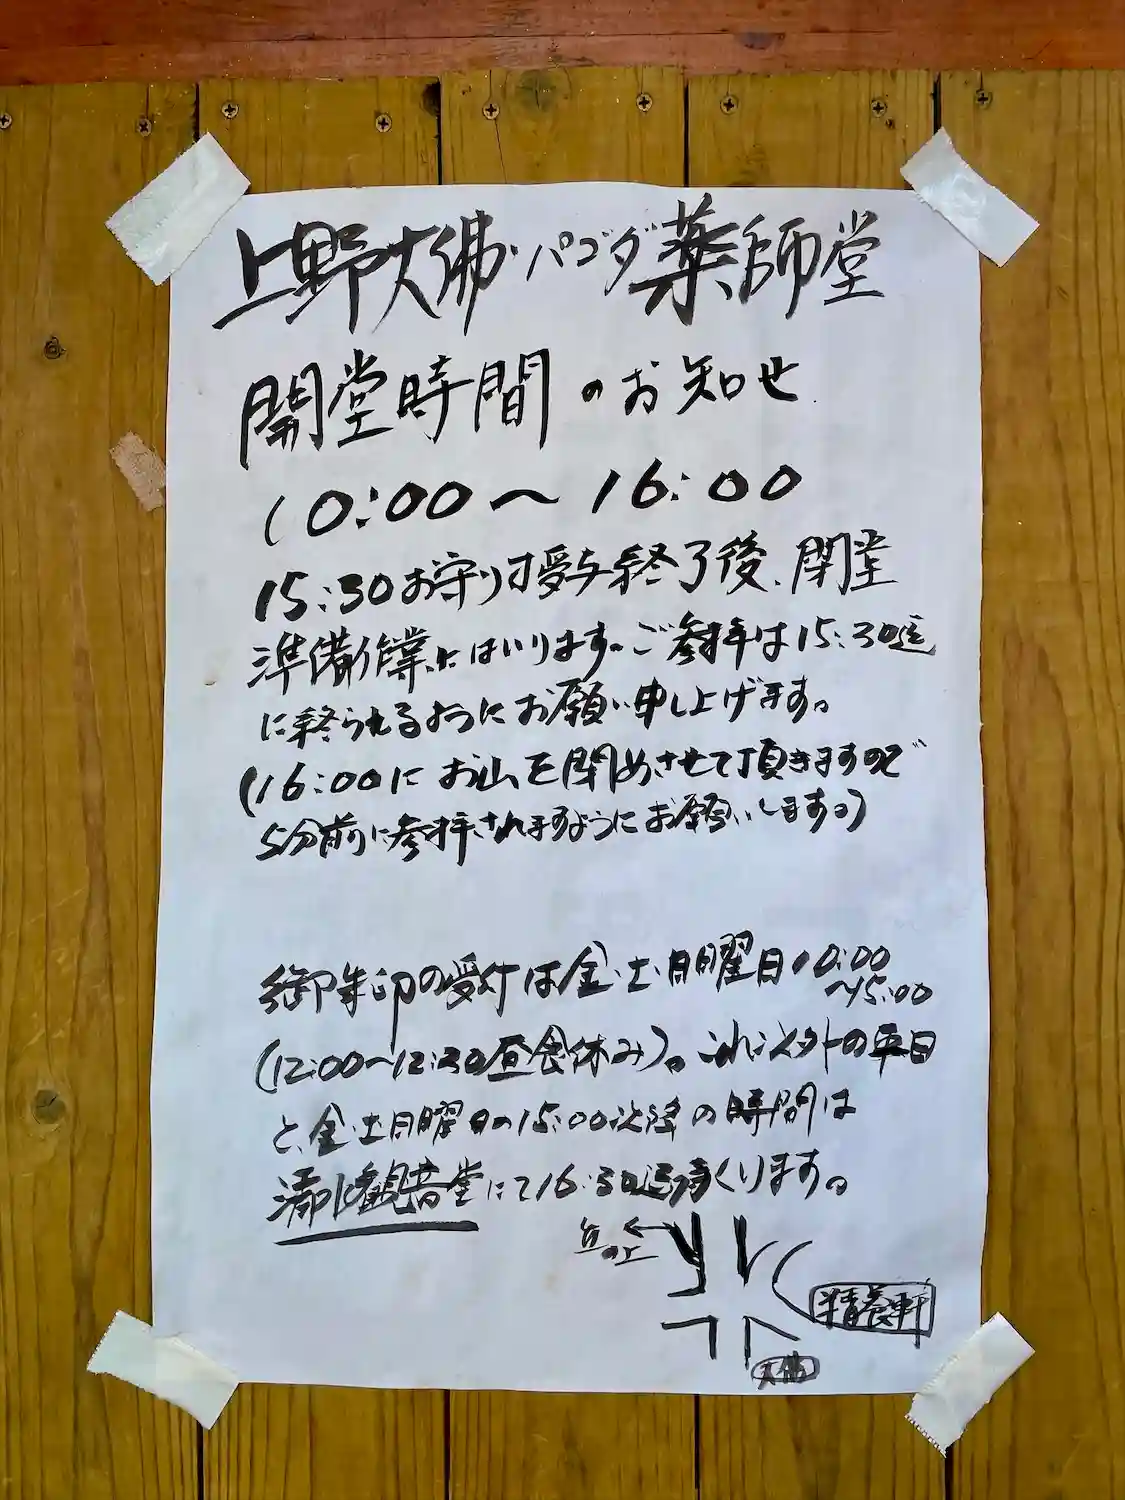 上野大佛・パゴダ薬師堂
開堂時間のお知せ
10:00〜16:00
15:30お守り授与終了後、閉堂
準備作業にはいります。ご参拝は15:30迄
に終られるようにお願い申し上げます。
(16:00にお山を閉めさせて頂きますので
5分前に参拝されますようにお願いします。)
御朱印の受付は金・土・日曜日10:00
〜15:00
(12:00〜12:30昼食休み)。これ以外の平日
と、金・土・日曜日の15:00以降の時間は
清水観音堂にて16:30迄承くります。
丘の上
精養軒
大佛